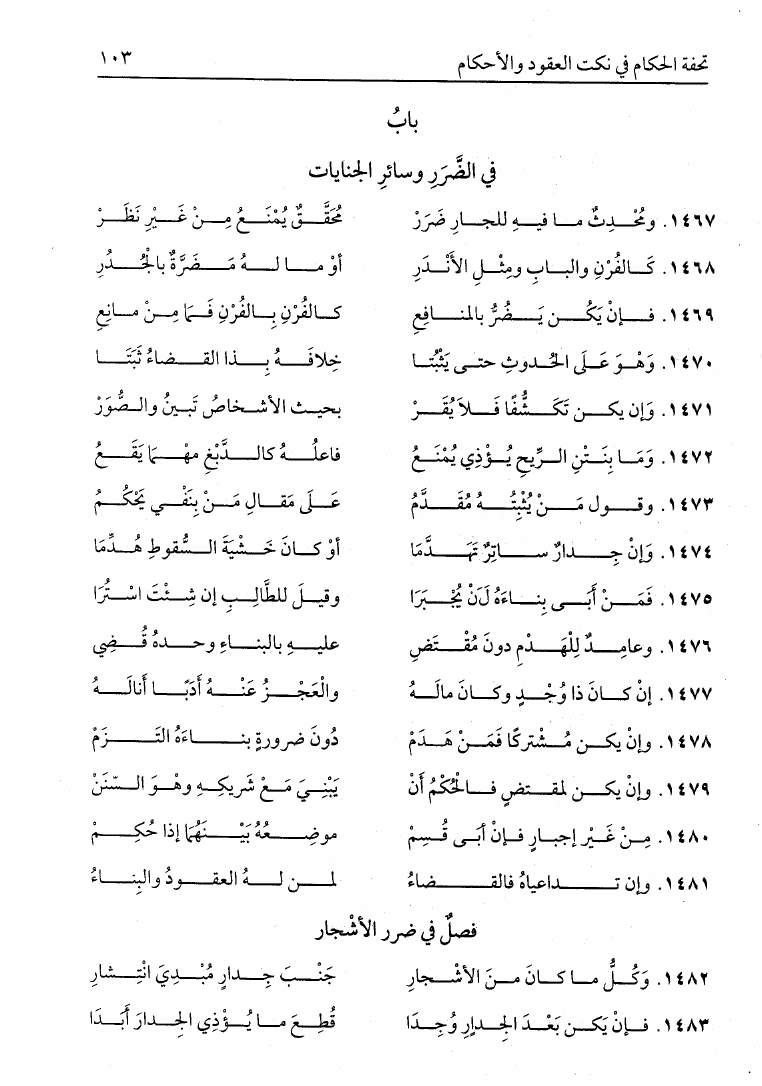 تحفة الحكام في نكت العقود والأحكام ١٠٣
بابُ
في الضَّرَرِ وسائرِ الجنايات
١٤٦٧. ومُحْدِثٌ ما فيهِ للجارِ ضَرَرْ مُحَقَّقٌ يُمْنَعُ مِنْ غَيْرِ نَظَرْ
١٤٦٨. كَالفُرْنِ والبابِ ومِثْلِ الأَنْدَرِ أوْ ما لهُ مَضَرَّةٌ بالجُدُرِ
١٤٦٩. فإنْ يَكُن يَضُرُّ بالمنافِعِ كالفُرْنِ بالفُرْنِ فَمَا مِنْ مانِعِ
١٤٧٠. وَهْوَ عَلَى الحُدوثِ حتى يَثْبُتا خِلافُهُ بِذا القضاءُ ثَبَتَا
١٤٧١. وَإن يكن تَكَشُّفًا فَلاَ يُقَرْ بحيث الأشخاصُ تَبينُ والصُّوَرْ
١٤٧٢. وَمَا بِنَتْنِ الرِّيحِ يُؤْذِي يُمْنَعُ فاعلُهُ كالدَّبْغِ مهْمَا يَقَعُ
١٤٧٣. وقول مَنْ يُثْبِتُهُ مُقَدَّمُ عَلَى مَقَالِ مَنْ بِنَفْيٍ يَحْكُمُ
١٤٧٤. وَإنْ جِدارٌ ساتِرٌ تَهَدَّمَا أو كانَ خَشْيَةَ السُّقوطِ هُدِّمَا
١٤٧٥. فَمَنْ أَبَى بِناءَهُ لَنْ يُجْبَرَا وقيلَ للطَّالِبِ إن شِئْتَ اسْتُرَا
١٤٧٦. وعامِدٌ لِلْهَدْمِ دونَ مُقْتَضِ عليهِ بالبناءِ وحدهُ قُضِي
١٤٧٧. إنْ كانَ ذا وُجْدٍ وكانَ مالَهُ والْعَجْزُ عَنْهُ أدَبًا أنالَهُ
١٤٧٨. وإن يكن مُشْتركًا فَمَنْ هَدَمْ دُونَ ضرورةٍ بناءَهُ التَزَمْ
١٤٧٩. وإنْ يكن لمقتضٍ فالحُكْمُ أَنْ يَبْنِيَ مَعْ شَرِيكِهِ وهْوَ السَّنَنْ
١٤٨٠. مِنْ غَيْرِ إجبارٍ فإنْ أبَى قُسِمْ موضِعُهُ بَيْنَهُمَا إذا حُكِمْ
١٤٨١. وإن تداعياهُ فالقضاءُ لمن لهُ العقودُ والبِناءُ
فصلٌ في ضرر الأشجار
١٤٨٢. وَكُلُّ ما كانَ منَ الأشجارِ جَنْبَ جِدارٍ مُبْدِيَ انْتِشارِ
١٤٨٣. فإنْ يَكن بَعْدَ الجِدارِ وُجِدَا قُطِعَ ما يُؤْذِي الجِدارَ أَبَدَا